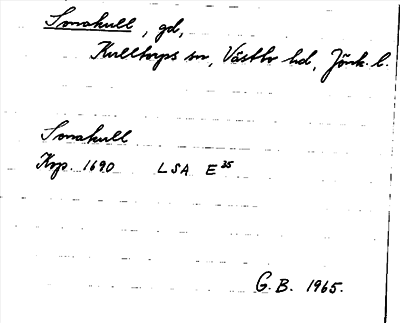 Sonakull, gd,
Kulltorps sn, Västbo hd, Jönk. l.
Sonakull
Kop. 1690 LSA E 35
G. B. 1965.